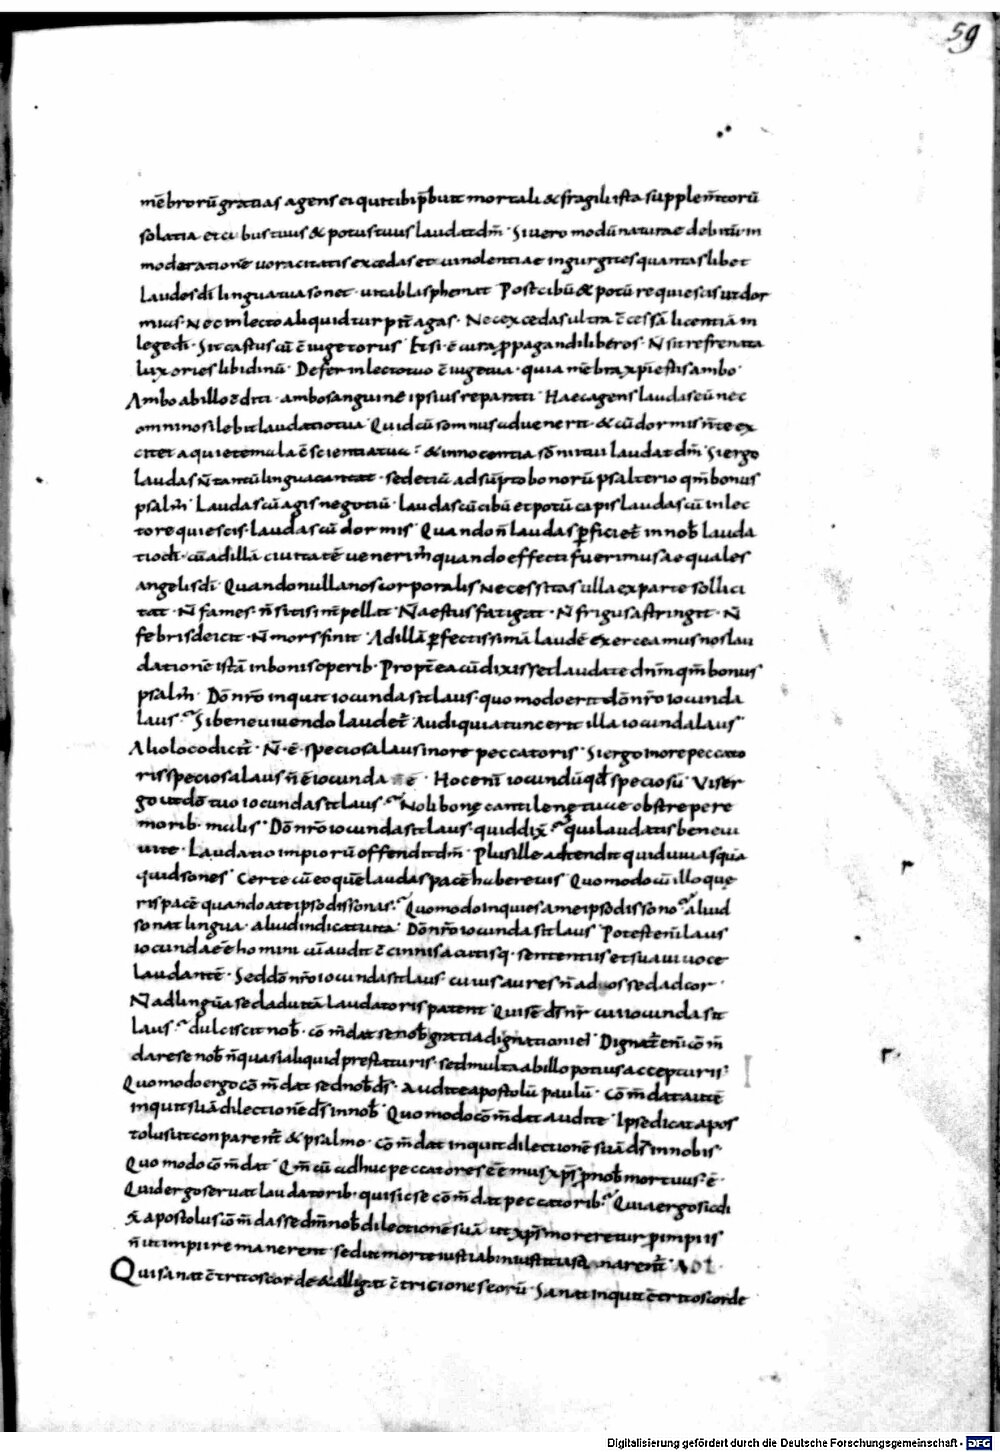 59
mēbrorū gratias agens ei qui tibi p̄buit mortali & fragili ista supplem̄torū
solatia et cibus tuus & potus tuus laudat dm̄ · Si uero modū naturae debitū in
moderatione uoracitatis excedas et uinolentiae ingurgites quantaslibet
laudes dī lingua tua sonet · uita blasphemat · Post cibū & potū requiescis ut dor
mias · Nec in lecto aliquid turp̄r̄ agas · Nec excedas ultra c̄cessā licentiā in
lege dī · Sit castus cū c̄iuge torus · Etsi · ē cura ꝓpagandi liberos · N̄ sit refrenata
luxories libidinū · Defer in lecto tuo c̄iugetua · quia mēbra xp̄i estis ambo ·
Ambo ab illo c̄diti · ambo sanguine ipsius reparati · Haec agens laudas cū nec
omnino silebit laudatio tua · Quid cū somnus aduenerit · & cū dormis n̄ te ex
citet a quiete mala c̄scientia tua : & innocentia sōni tui laudat dm̄ · Si ergo
laudas n̄ tantū lingua cantat · sed etiā adsūpto bonorū psalterio qm̄ bonus
psalm̄ · Laudas cū agis negotiū · laudas cū cibū et potū capis laudas cū in lec
to requiescis · laudas cū dormis · Quando n̄ laudas ꝑficiet̄ in nob̄ lauda
tio dī · cū ad illā ciuitatē uenerim̄ quando effecti fuerimus aequales
angelis dī · Quando nulla nos corporalis necessitas ulla ex parte sollici
tat · N̄ fames · n̄ sitis im̄pellit · N̄ aestus fatigat · N̄ frigus astringit · N̄
febris deicit · N̄ mors finit · Ad illā ꝑfectissimā laudē exerceamus nos lau
datione istā in bonis operib · Propt̄ea cū dixisset laudate dn̄m qm̄ bonus
psalm̄ · Dō nr̄o inquit iocunda sit laus · quomodo erit dō nr̄o iocunda
laus · Si bene uiuendo laudet̄ · Audi quia tunc erit illa iocunda laus
Alio loco dicit̄ · N̄ · ē · speciosa laus in ore peccatoris · Si ergo in ore peccato
ris speciosa laus n̄ ē iocunda ē · Hoc enī iocundū qđ speciosū · Vis er
go ut dō tuo iocunda sit laus · Noli bonę cantilenę tuae obstrepere
morib malis · Dō nr̄o iocunda sit laus · quid dix̄ · qui laudatis bene ui
uite · Laudatio impiorū offendit dm̄ · Plus ille adtendit quid uiuas quā
quid sones · Certe cū eo quē laudas pacē habere uis · Quomodo cū illo quę
ris pacē quando a te ipso dissonas · Quomodo inquies a me ipso dissono · aliud
sonat lingua · aliud indicat uita · Dō nr̄o iocunda sit laus · Potest enī laus
iocunda eē homini cū audit c̄cinnis acutisq · sententiis et suaui uoce
laudantē · Sed dō nr̄o iocunda sit laus · cuius aures n̄ ad os sed ad cor ·
N̄ ad linguā sed ad uitā laudatoris patent · Quis ē ds̄ nr̄ cui iocunda sit
laus · dulciscit nob̄ · cōm̄dat se nob̄ gratia dignationi eī · Dignat̄ enī cōm̄
dare se nob̄ n̄ quasi aliquid prestaturis · sed multa ab illo potius accepturis
Quomodo ergo cōm̄dat se dnob̄ ds̄ · audite apostolū paulū · Cōm̄dat autē
inquit suā dilectionē ds̄ in nob̄ · Quomodo cōm̄dat audite · Ipse dicat apos
tolus ut conparem̄ & psalmo · cōm̄dat inquit dilectionē suā ds̄ in nobis
Quomodo cōm̄dat · Qm̄ cū adhuc peccatores eēmus xp̄s ꝓ nob̄ mortuus · ē ·
Quid ergo seruat laudatorib · qui sic se cōm̄dat peccatorib · Quia ergo sic di
x̄ apostolus cōm̄dasse dm̄ nob̄ dilectionē suā ut xp̄s moreretur ꝓ impiis
n̄ ut impii remanerent · sed ut morte iusti ab iniustitia sanarent̄ ·
Qui sanat c̄tritos corde & alligat c̄tritiones eorū · Sanat inquit c̄tritos corde
Digitalisierung gefördert durch die Deutsche Forschungsgemeinschaft - DFG